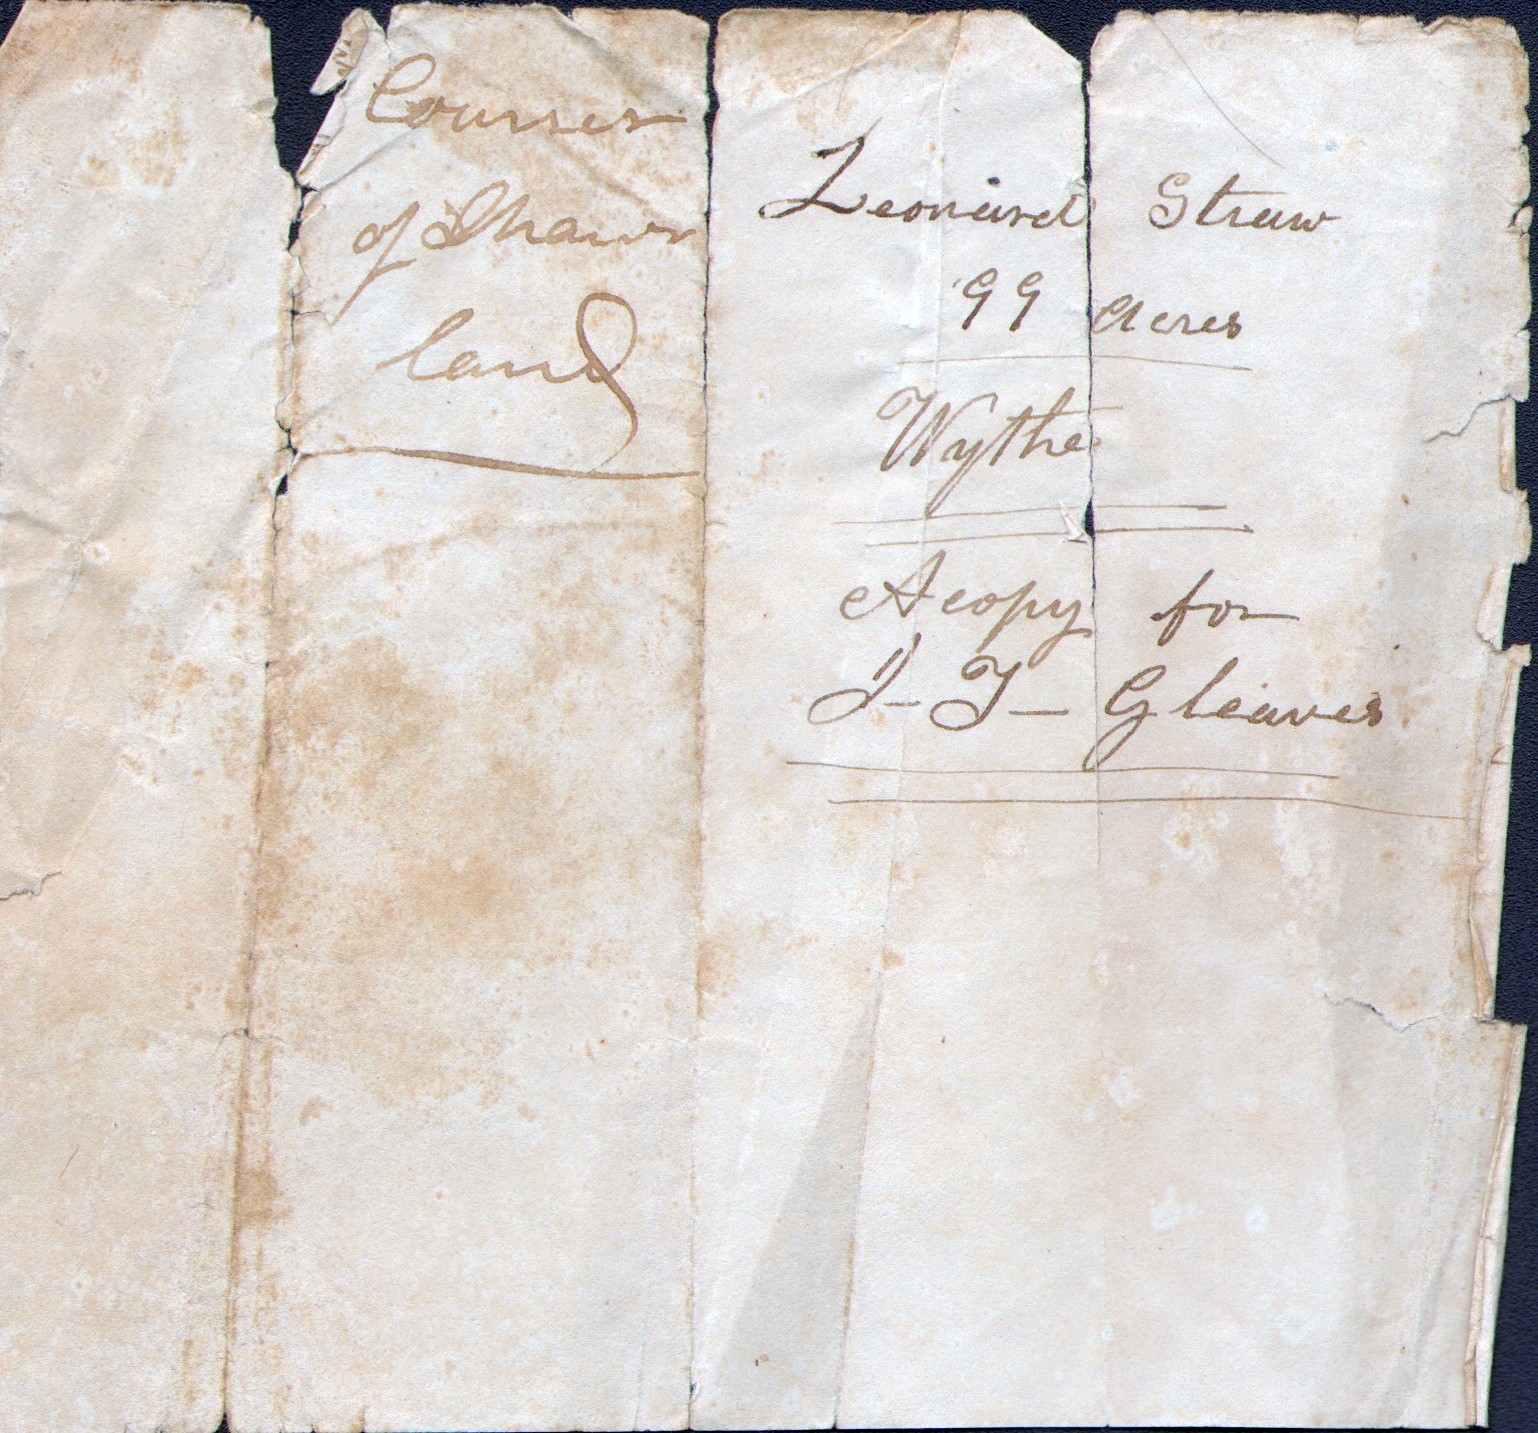 Courses
of Shaws
land
Leonard Straw
99 acres
Wythe
A copy for
J - T - Gleaves